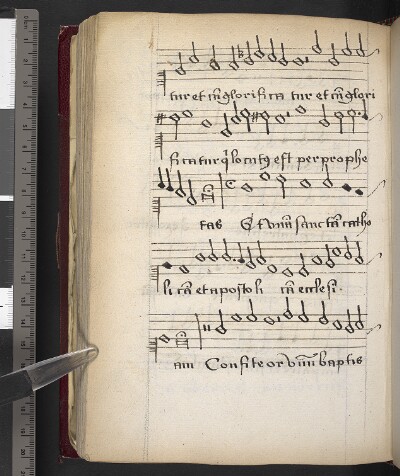 tur et cū glorifica tur et cū glori
fi catur q̄ locutꝰ est per prophe
tas Et vnā sanctā catho
li cā et aposto li cā ecclesi.
am Confiteor vnū baptis